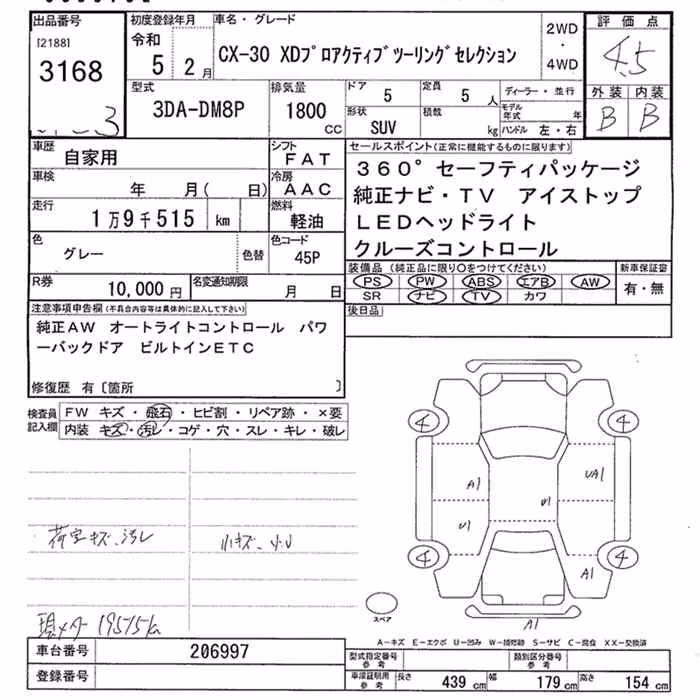 出品番号 初度登録年月 車名・グレード 評価点
[2188] 令和 2WD
3168 5 2月 CX-30 XDプロアクティブツーリングセレクション ・ 4.5
4WD
型式 排気量 ドア 5 定員 5 人 ディーラー・並行 外装 内装
3DA-DM8P 1800 cc 形状 SUV 積載 kg モデル年式 年 B B
3 ハンドル 左・右
車歴 自家用 シフト FAT セールスポイント(正常に機能するものに限ります)
車検 年 月( 日) 冷房 AAC 360°セーフティパッケージ
走行 1万9千515 km 燃料 軽油 純正ナビ・TV アイストップ
色 グレー 色替 色コード 45P LEDヘッドライト
クルーズコントロール
R券 10,000円 名変通知期限 月 日 装備品(純正品に限り○をつけてください) 新車保証書
PS PW ABS エアB AW 有・無
SR ナビ TV カワ
注意事項申告欄(不具合内容等は具体的に記入して下さい) 後日品
純正AW オートライトコントロール パワ
ーバックドア ビルトインETC
修復歴 有〔箇所 〕
検査員 FW キズ・飛石・ヒビ割・リペア跡・×要
記入欄 内装 キズ・汚レ・コゲ・穴・スレ・キレ・破レ
4 4
A1 UA1
U1
U1
荷室キズ、汚レ 小キズ、小U
4 4
A1
スペア
A1
現メーター 19515km
A-キズ E-エクボ U-凹み W-補修跡 S-サビ C-腐食 XX-交換済
車台番号 206997 型式指定番号 参考 類別区分番号 参考
登録番号 車検証明用 参考 長さ 439 cm 幅 179 cm 高さ 154 cm